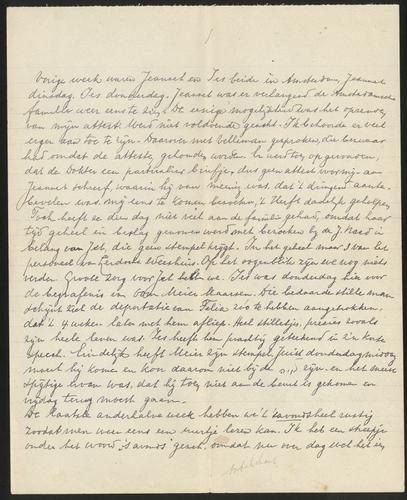 1
Vorige week waren Jeannet en Ies beide in Amsterdam, Jeannet
dinsdag, Ies donderdag. Jeannet was er verlangend de Amsterdamsche
familie weer eens te zien. De eenige mogelijkheid was het opzenden
van mijn attest. Werd niet voldoende geacht. Ik behoorde er veel
erger aan toe te zijn. Daarover met Velleman gesproken, die bezwaar
had omdat de attesten gehouden worden. En werd toen gevonden,
dat de Dokter een particulier briefje, dus geen attest voor mij aan
Jeannet schreef, waarin hij van meening was, dat 't dringend aanbe-
bevelen was mij eens te komen bezoeken, 't Heeft dadelijk geholpen.
Toch heeft ze dien dag niet veel aan de familie gehad, omdat haar
tijd geheel in beslag genomen werd met bezoeken bij de J. Raad in
belang van Jet, die geen stempel krijgt. In het geheel maar 3 van het
personeel van
Op het oogenblik zijn we nog niets
verder. Groote zorg voor Jet
we. Ies was donderdag hier voor
de begrafenis van Oom Meier Maarsen. Die bedaarde stille man
schijnt zich de deportatie van Felix zoo te hebben aangetrokken,
dat 't 4 weken later met hem afliep. Heel stilletjes, precies zooals
zijn heele leven was. Ies heeft hem prachtig geteekend in z'n korte
speech. Eindelijk heeft Meier zijn stempel. Juist donderdagmiddag
moest hij komen en kon daarom niet bij de
zijn en het meest
spijtige ervan was, dat hij toch niet aan de beurt is gekomen en
vrijdag terug moest gaan.
De laatste anderhalve week hebben we 't 's avonds heel rustig
zoodat men weer eens een uurtje lezen kan. Ik heb een streepje
onder het woord "'s avonds" gezet, omdat men over dag wel het een